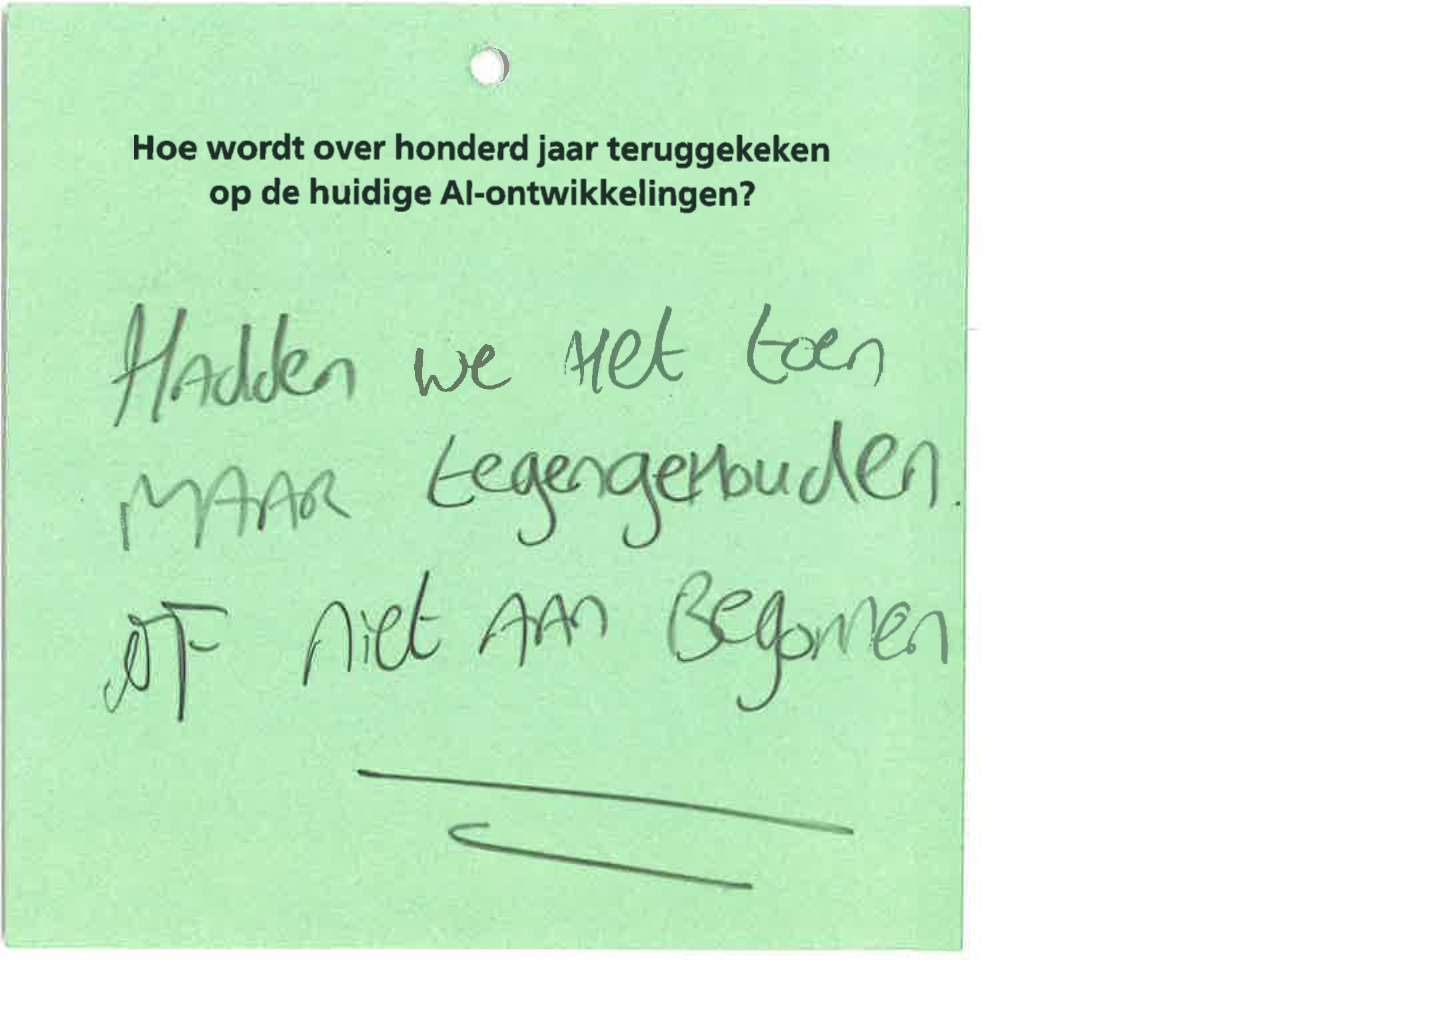 Hoe wordt over honderd jaar teruggekeken
op de huidige AI-ontwikkelingen?
Hadden we Het toen
MAAR tegengehouden.
OF niet AAn Begonnen